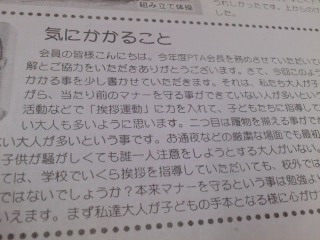 組み立て体操
うれしかったです。上から
した。
気にかかること
会員の皆様こんにちは。今年度PTA会長を務めさせていただいて
解とご協力をいただきありがとうございます。さて、今回このよう
かかる事を少し書かせていただきます。それは、私たち大人が子
がら、当たり前のマナーを守る事ができていない人が多いという
活動などで「挨拶運動」に力を入れて、子どもたちに指導して
い大人も多いように思います。二つ目は履物を揃える事ができ
い大人が多いという事です。お通夜などの厳粛な場面でも最初
子供が騒がしくても誰一人注意をしようとする大人がいない。
ては、学校でいくら挨拶を指導していただいても、校外では
ではないでしょうか？本来マナーを守るという事は勉強よ
いえます。まず私達大人が子どもの手本となる様に心がけ